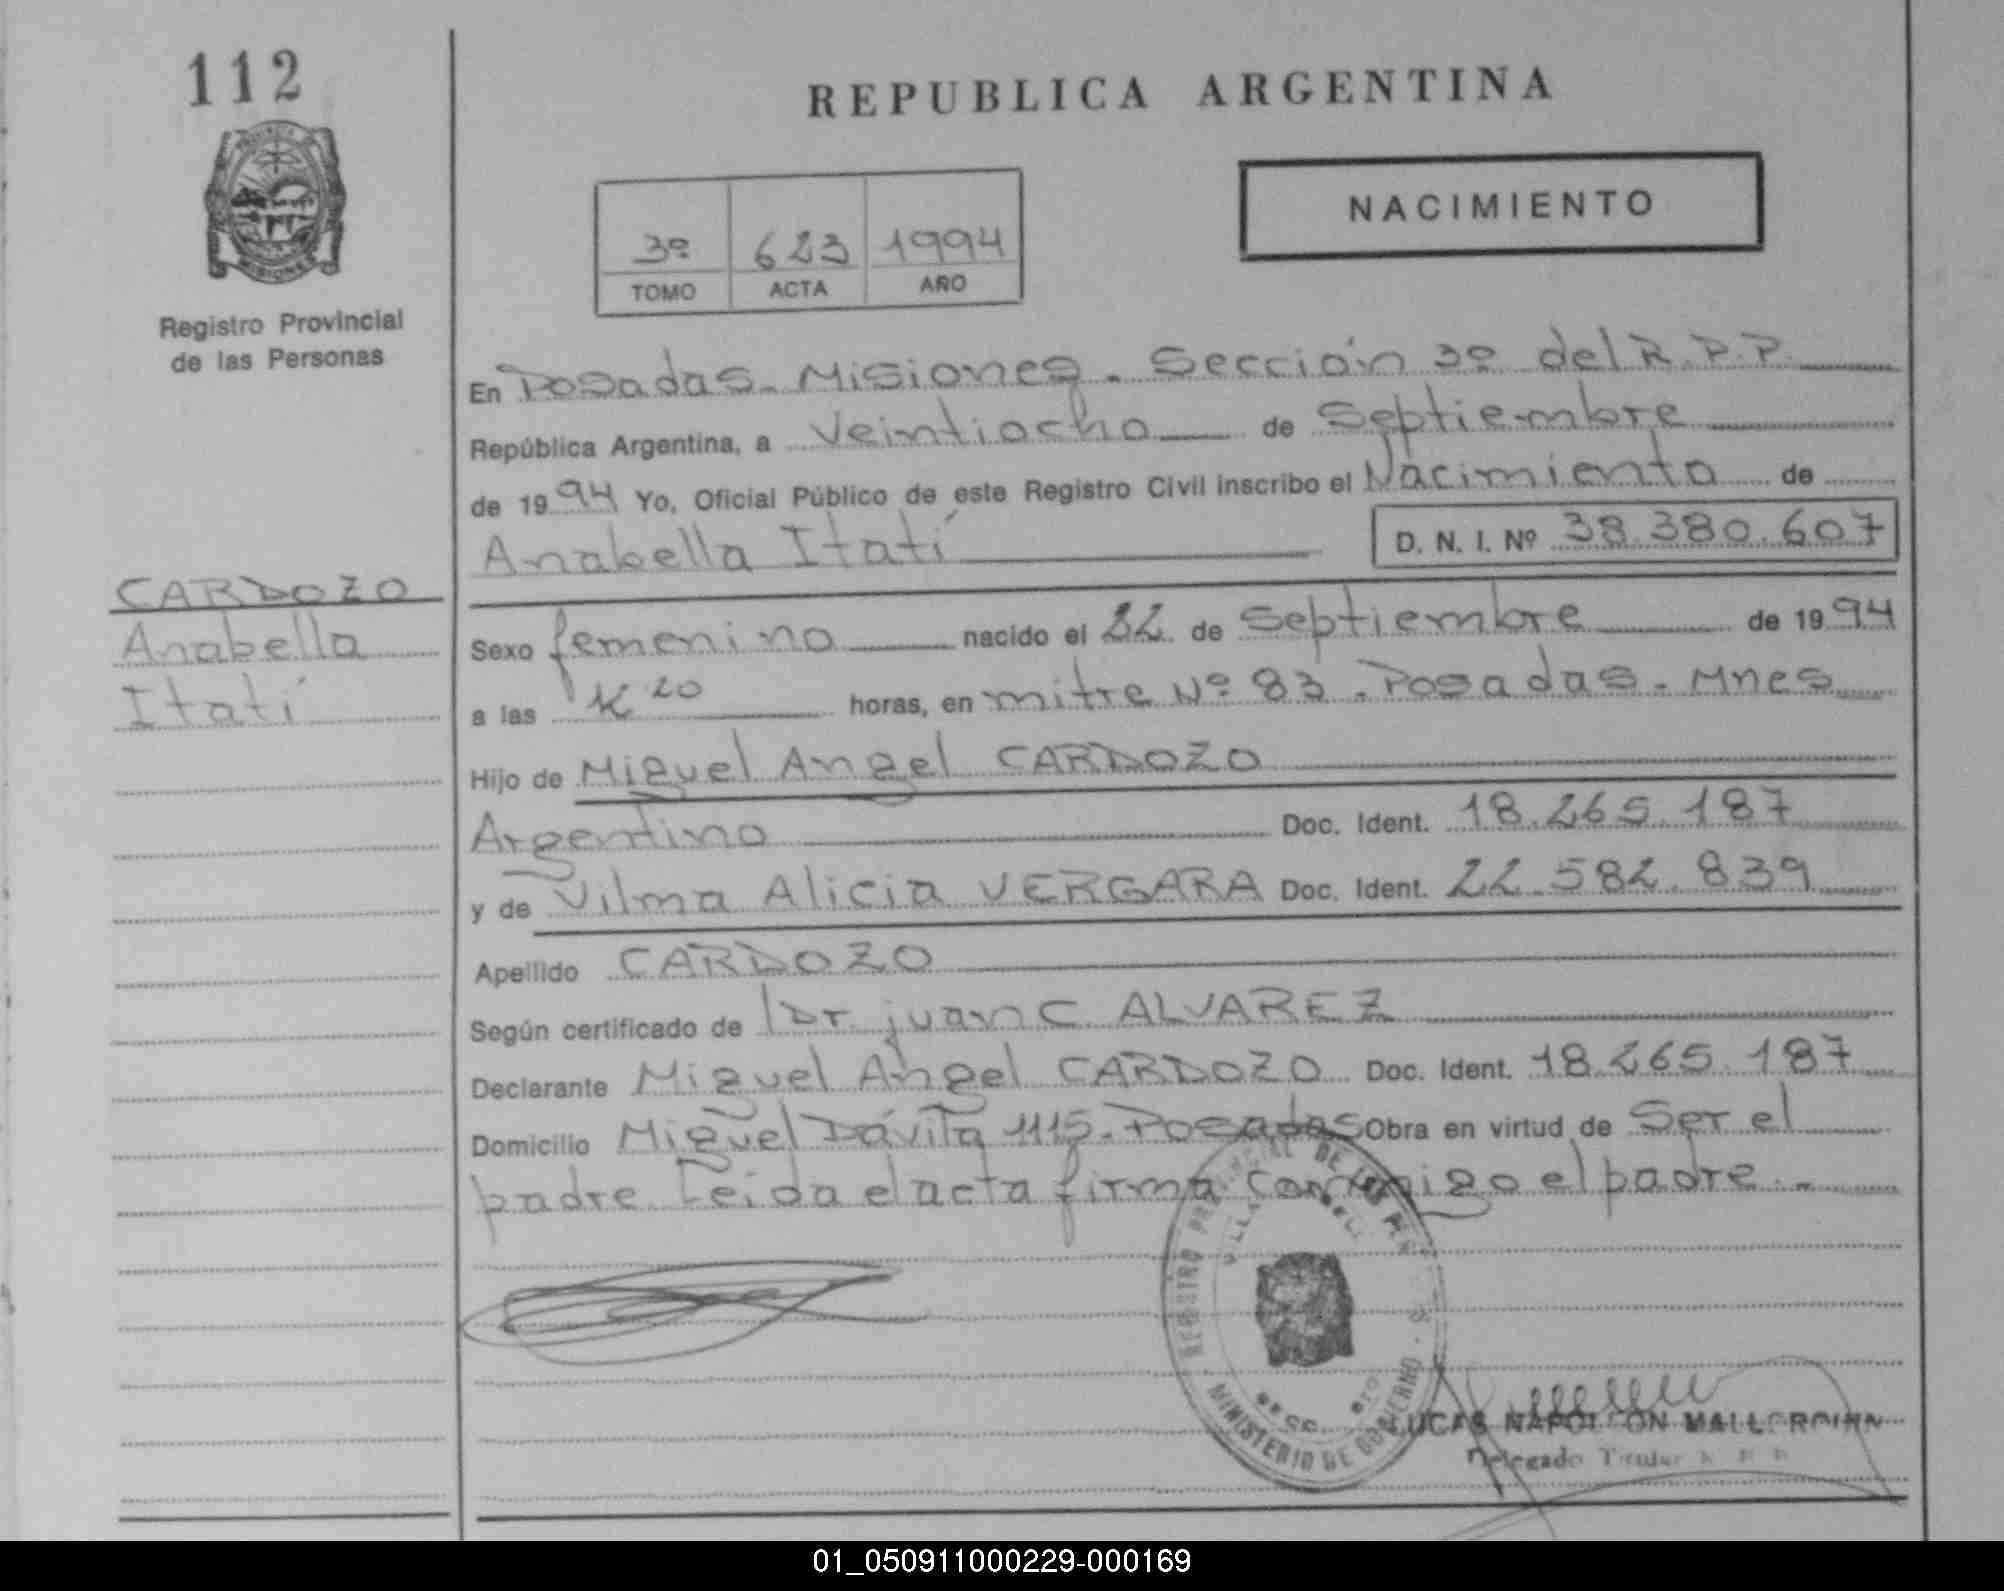 112
REPUBLICA ARGENTINA
NACIMIENTO
3º 623 1994
TOMO ACTA AÑO
MISIONES
Registro Provincial
de las Personas
En Posadas - Misiones - Sección 3º del R.P.P.
República Argentina, a Veintiocho de Septiembre
de 1994 Yo, Oficial Público de este Registro Civil inscribo el Nacimiento de
Anabella Itatí D. N. I. Nº 38.380.607
CARDOZO
Anabella
Itatí
Sexo femenino nacido el 22 de Septiembre de 1994
a las 20 horas, en mitre Nº 83 - Posadas - Mnes
Hijo de Miguel Angel CARDOZO
Argentino Doc. Ident. 18.265.187
y de Vilma Alicia VERGARA Doc. Ident. 22.582.839
Apellido CARDOZO
Según certificado de Dr. juan C. ALVAREZ
Declarante Miguel Angel CARDOZO Doc. Ident. 18.265.187
Domicilio Miguel Dávila 1115 - Posadas Obra en virtud de Ser el
padre Leida el acta firma conmigo el padre.-
REGISTRO PROVINCIAL DE LAS
MINISTERIO DE GOBIERNO
LUCAS NAPOLEON
Delegado Titular
01_050911000229-000169